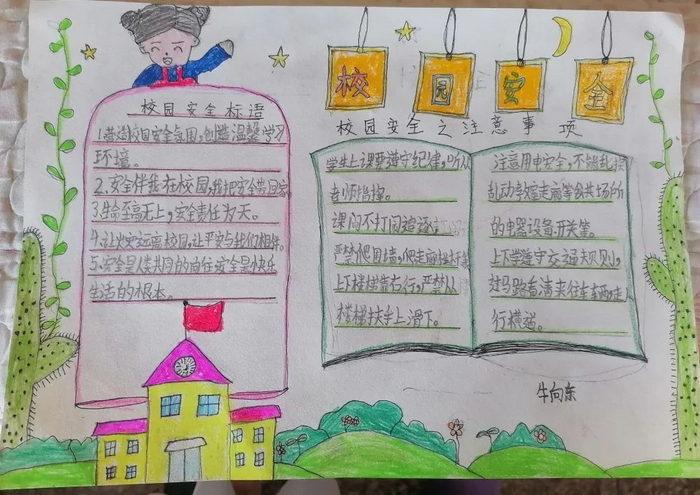 校园安全
校园安全标语
1.营造校园安全氛围,创造温馨学习
环境。
2.安全伴我在校园,我把安全带回家
3.生命至高无上,安全责任为天。
4.让火灾远离校园,让平安与我们相伴。
5.安全是人类共同的向往安全是快乐
生活的根本。
校园安全之注意事项
学生上课要遵守纪律,听从
老师指挥。
课间不打闹追逐
严禁爬围墙,爬走廊栏杆
上下楼梯靠右行,严禁从
楼梯扶手上滑下。
注意用电安全,不能乱接
乱动教室走廊等公共场所
的电器设备开关等。
上下学遵守交通规则
过马路看清来往车辆
行横道。
牛向东